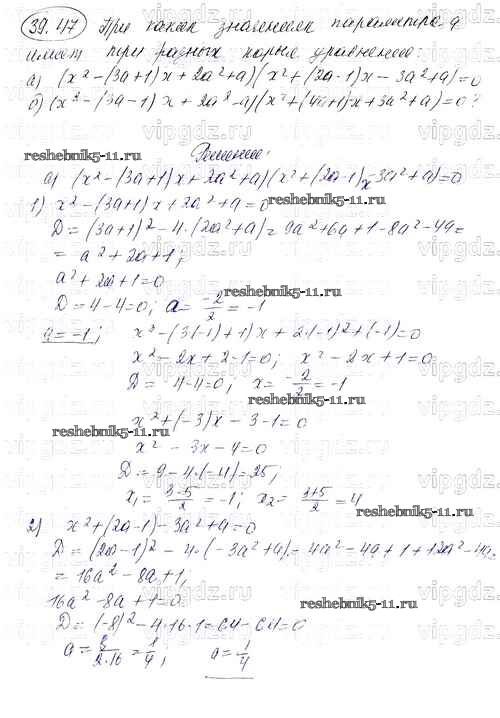 39.47 При каких значениях параметра a
имеют три разных корня уравнения:
а) (x² - (3a+1)x + 2a² + a)(x² + (2a-1)x - 3a² + a) = 0
б) (x² - (3a-1)x + 2a² - a)(x² + (4a+1)x + 3a² + a) = 0?
Решение:
reshebnik5-11.ru
а) (x² - (3a+1)x + 2a² + a)(x² + (2a-1)x - 3a² + a) = 0
1) x² - (3a+1)x + 2a² + a = 0
reshebnik5-11.ru
D = (3a+1)² - 4·(2a² + a) = 9a² + 6a + 1 - 8a² - 4a =
= a² + 2a + 1;
a² + 2a + 1 = 0
reshebnik5-11.ru
D = 4 - 4 = 0; a = -2/2 = -1
a = -1; x² - (3(-1) + 1)x + 2·(-1)² + (-1) = 0
x² - 2x + 2 - 1 = 0; x² - 2x + 1 = 0
D = 4 - 4 = 0; x = -2/2 = -1
reshebnik5-11.ru
x² + (-3)x - 3 - 1 = 0
reshebnik5-11.ru
x² - 3x - 4 = 0
D = 9 - 4·(-4) = 25;
x₁ = (3-5)/2 = -1; x₂ = (3+5)/2 = 4
reshebnik5-11.ru
2) x² + (2a-1) - 3a² + a = 0
D = (2a-1)² - 4·(-3a² + a) = 4a² - 4a + 1 + 12a² - 4a =
= 16a² - 8a + 1;
16a² - 8a + 1 = 0
reshebnik5-11.ru
D = (-8)² - 4·16·1 = 64 - 64 = 0
a = 8/(2·16) = 1/4; a = 1/4